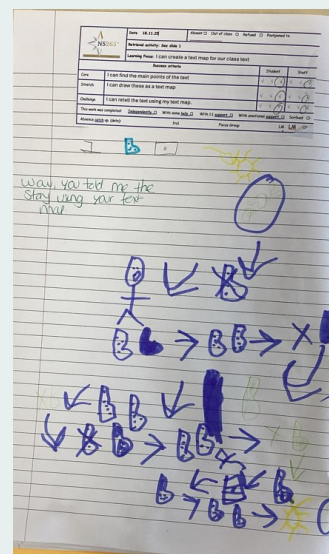 NSG365
Date 18.11.20
Absent □ Out of class □ Refused □ Postponed to
Retrieval activity: See slide 1
Learning Focus: I can create a text map for our class text
Success criteria
Student
Staff
Core
I can find the main points of the text
Stretch
I can draw these as a text map
Challenge
I can retell the text using my text map.
This work was completed: Independently □ With some help □ With 1:1 support □ With emotional support □ Scribed □
Absence catch up (date)
Focus Group
LM
wow, you told me the
story using your text
map